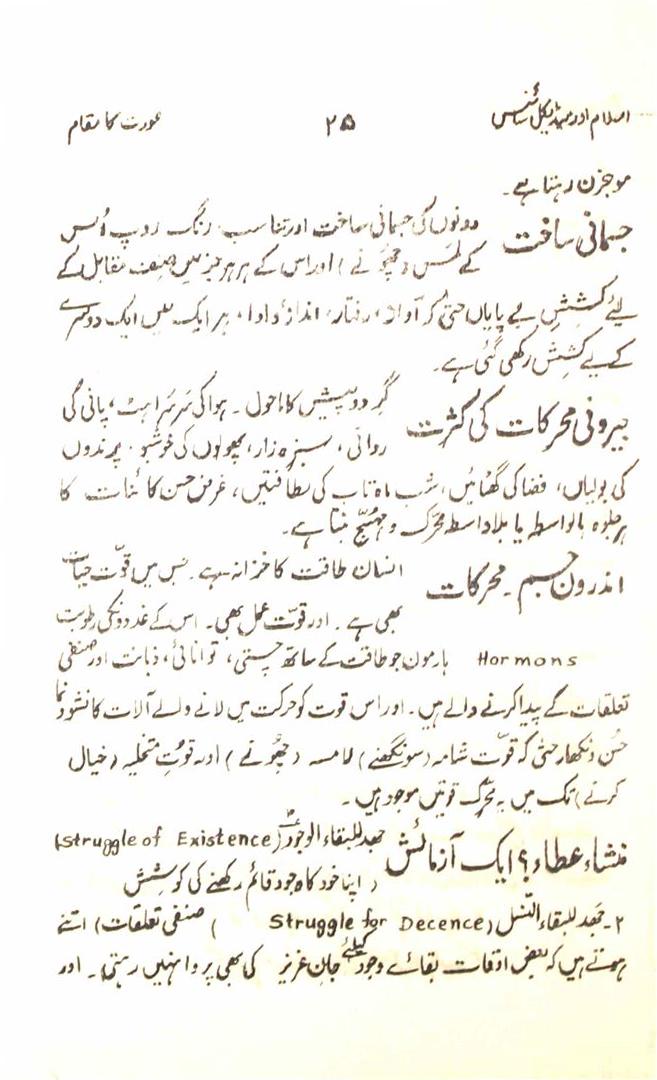 اسلام اور میڈیکل سائنس ۲۵ عورت کا مقام
موجزن رہتا ہے۔
جسمانی ساخت دونوں کی جسمانی ساخت اور تناسب، رنگ روپ اُنس
کے لمس (چھونے) اور اس کے ہر ہر جز میں صنف مقابل کے
لئے کشش بے پایاں حتیٰ کہ آواز، رفتار، انداز و ادا، ہر ایک میں ایک دوسرے
کے لیے کشش رکھی گئی ہے۔
بیرونی محرکات کی کثرت گردوپیش کا ماحول۔ ہوا کی سَرسَراہٹ، پانی کی
روانی، سبزہ زار، پھولوں کی خوشبو، پرندوں
کی بولیاں، فضا کی گھٹائیں، شب ماہ تاب کی لطافتیں، غرض حسن کائنات کا
ہر جلوہ بالواسطہ یا بلاواسطہ محرّک و مہیّج بنتا ہے۔
اندرون جسم۔ محرکات انسان طاقت کا خزانہ ہے۔ جس میں قوّت حیات
بھی ہے۔ اور قوّت عمل بھی۔ اس کے غدود کی رطوبت
Hormons ہارمون جو طاقت کے ساتھ چستی، توانائی، ذہانت اور صنفی
تعلقات کے پیدا کرنے والے ہیں۔ اور اس قوت کو حرکت میں لانے والے آلات کا نشوونما
حُسن و نکھار حتیٰ کہ قوّت شامہ (سونگھنے) لامسہ (چھُونے) اور قوّتِ متخیلہ (خیال
کرنے) تک میں یہ محرّک قوتیں موجود ہیں۔
منشاء عطاء؟ ایک آزمائش جھد للبقاء الوجود (Struggle of Existence)
(اپنا خود کا وجود قائم رکھنے کی کوشش
۲۔ جھد للبقاء النسل (Struggle for Decence) صنفی تعلقات) اتنے
ہوتے ہیں کہ بعض اوقات بقائے وجود کیلئے جان عزیز کی بھی پروا نہیں رہتی۔ اور